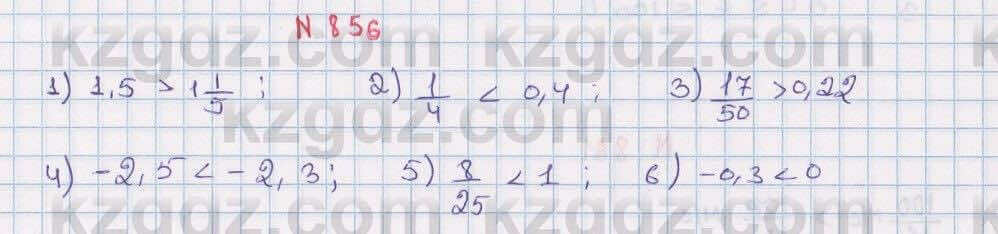 N 856
1) 1,5 > 1 1/5 ; 2) 1/4 < 0,4 ; 3) 17/50 > 0,22
4) -2,5 < -2,3; 5) 8/25 < 1 ; 6) -0,3 < 0
kzgdz.com kzgdz.com
kzgdz.com
kzgdz.com kzgdz.com